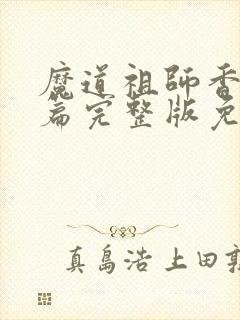 魔道祖師香
篇完整版免
真島浩上田敦